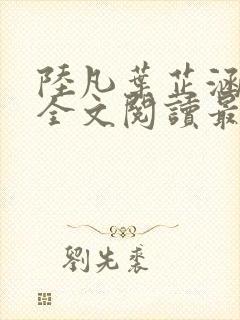 陸凡葉芷涵
全文閱讀最
劉先裘